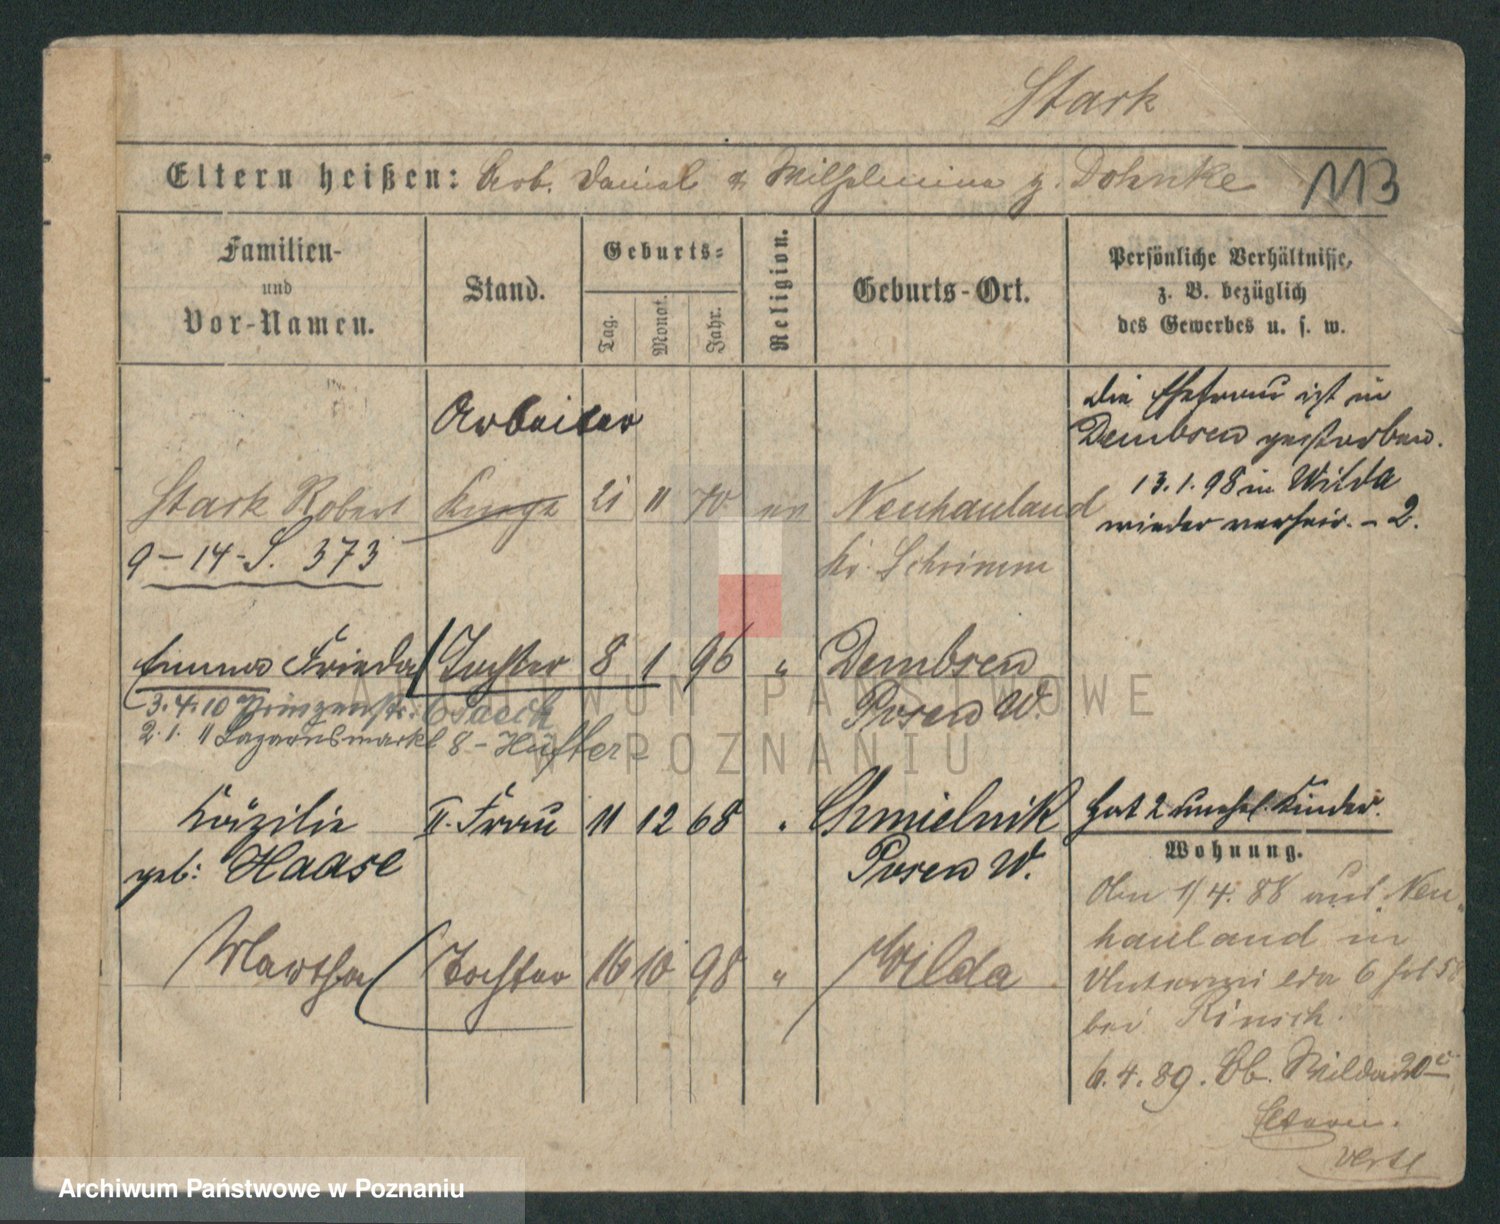 Stark
Eltern heißen: Arb. Daniel & Wilhelmine g. Dohnke
113
Familien-
und
Vor-Namen.
Stand.
Geburts-
Tag.
Monat.
Jahr.
Religion.
Geburts-Ort.
Persönliche Verhältnisse,
z. B. bezüglich
des Gewerbes u. s. w.
Arbeiter
Die Ehefrau ist in
Dembsen gestorben.
13.1.98 in Wilda
wieder verheir. - 2.
Stark Robert
9-14-S. 373
21 11 70 ev
Neuhauland
Kr. Schrimm
Emma Frieda Tochter 8 1 96 " Dembsen
Posen W.
3.4.10 Prinzenstr.
2.1.11 Lazarusmarkt 8 -
Cäzilie II. Frau 11 12 68 " Chmielnik
geb: Haase Posen W.
Hat 2 unehel. Kinder.
Wohnung.
Martha Tochter 16 10 98 " Wilda
1/4. 88 aus Neu-
hauland in
Unterwilda 6
bei Rinsch.
6.4.89. Ob. Wilda 20
Eltern.
verte
ARCHIWUM PAŃSTWOWE
W POZNANIU
Archiwum Państwowe w Poznaniu